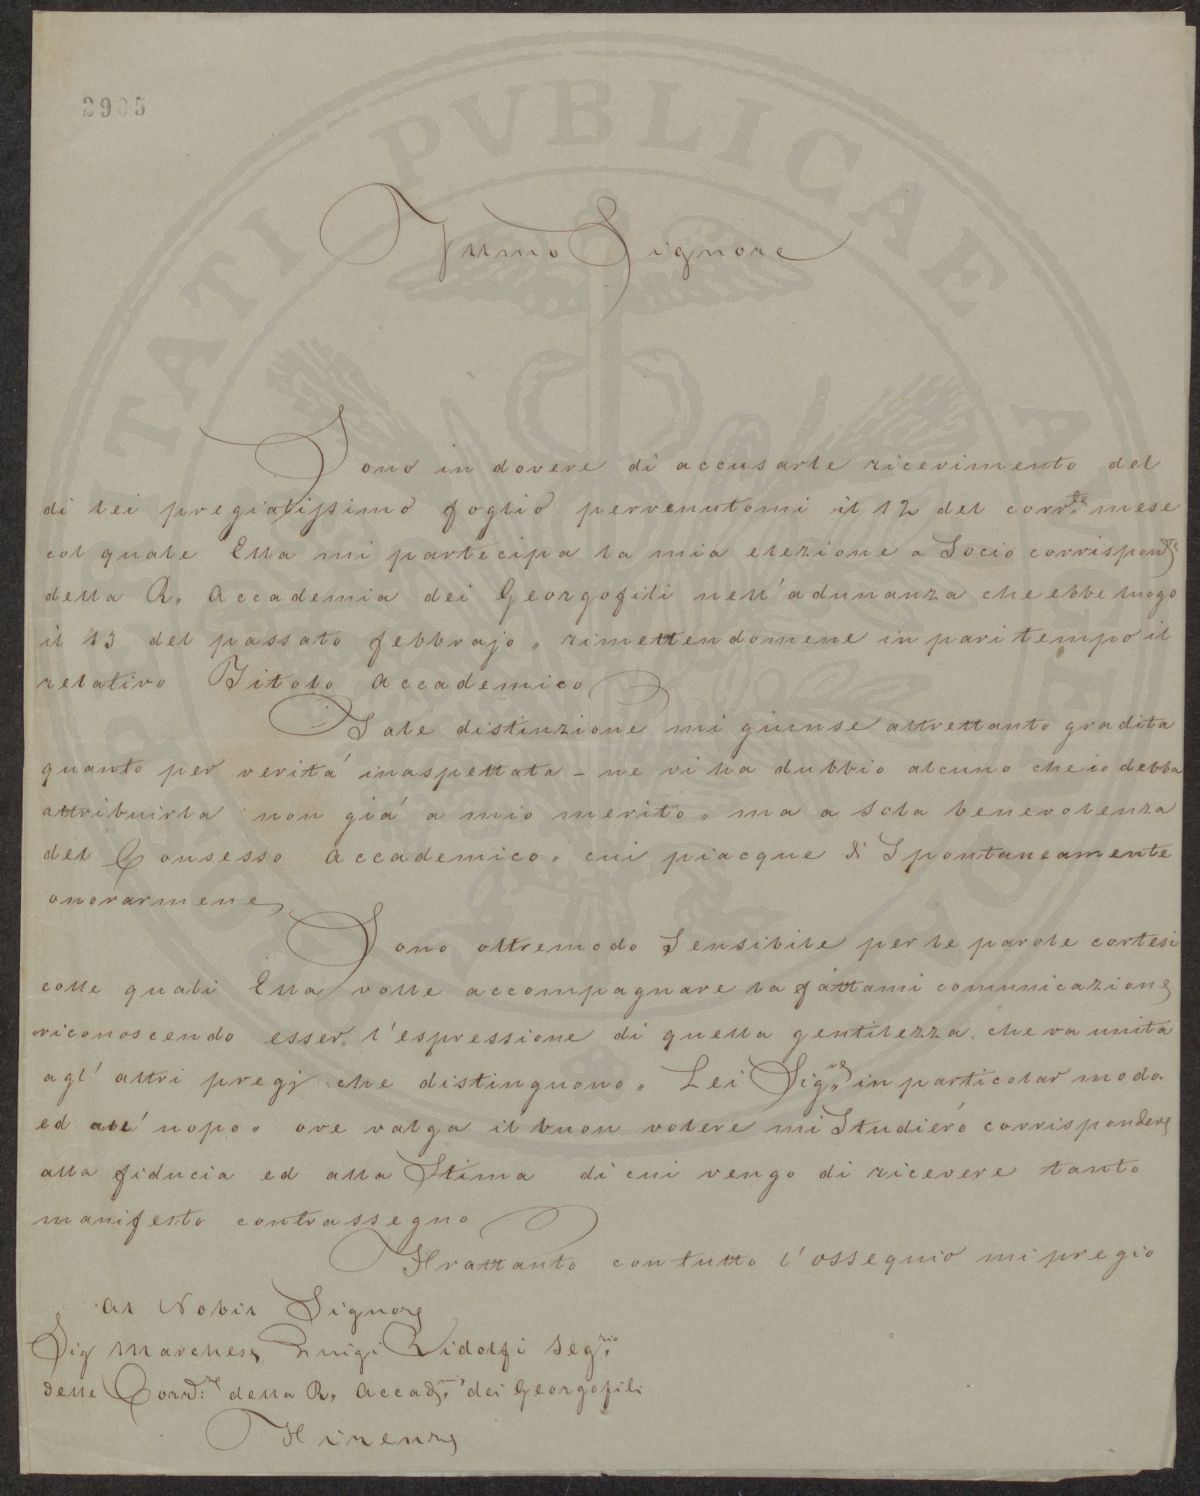 2905
PROSPERITATI PVBLICAE AVGENDAE
Illmo Signore
Sono in dovere di accusarle ricevimento del
di lei pregiatissimo foglio pervenutomi il 12 del corr.te mese
col quale Ella mi partecipa la mia elezione a Socio corrispondte
della R. Accademia dei Georgofili nell'adunanza che ebbe luogo
il 13 del passato febbrajo, rimettendomene in pari tempo il
relativo Titolo Accademico
Tale distinzione mi giunse altrettanto gradita
quanto per veritá inaspettata - ne vi ha dubbio alcuno che io debba
attribuirla non giá a mio merito, ma a sola benevolenza
del Consesso Accademico, cui piacque di Spontaneamente
onorarmene
Sono oltremodo Sensibile per le parole cortesi
colle quali Ella volle accompagnare la fattami comunicazione
riconoscendo esser l'espressione di quella gentilezza che va unita
agl'altri pregj che distinguono, Lei Sig.re in particolar modo.
ed all'uopo, ove valga il buon volere mi Studieró corrispondere
alla fiducia ed alla Stima di cui vengo di ricevere tanto
manifesto contrassegno
Frattanto con tutto l'ossequio mi pregio
Al Nobil Signore
Sig Marchese Luigi Ridolfi Seg.rio
delle Corrd.ze della R. Accad.mia dei Georgofili
Firenze